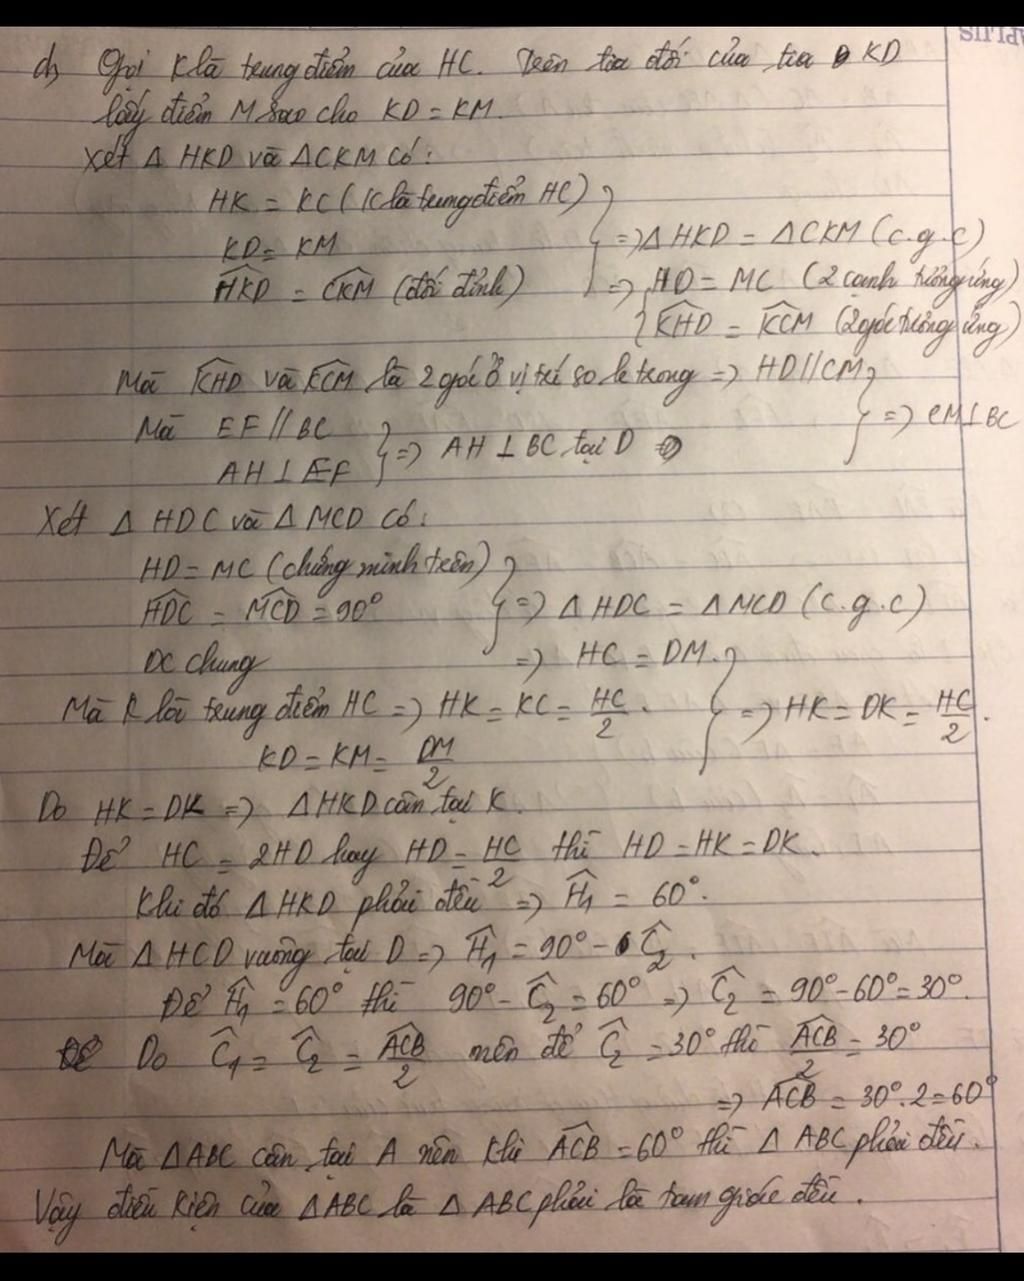 d, Gọi K là trung điểm của HC. Trên tia đối của tia KD
lấy điểm M sao cho KD = KM.
Xét Δ HKD và ΔCKM có:
HK = KC (K là trung điểm HC)
KD = KM
=> Δ HKD = ΔCKM (c.g.c)
\widehat{HKD} = \widehat{CKM} (đối đỉnh)
=> HD = MC (2 cạnh tương ứng)
\widehat{KHD} = \widehat{KCM} (2 góc tương ứng)
Mà \widehat{KHD} và \widehat{KCM} là 2 góc ở vị trí so le trong => HD // CM
Mà EF // BC
=> CM ⊥ BC
AH ⊥ EF
=> AH ⊥ BC tại D
Xét Δ HDC và Δ MCD có:
HD = MC (chứng minh trên)
\widehat{HDC} = \widehat{MCD} = 90°
=> Δ HDC = Δ MCD (c.g.c)
DC chung
=> HC = DM.
Mà K là trung điểm HC => HK = KC = \frac{HC}{2}.
=> HK = DK = \frac{HC}{2}.
KD = KM = \frac{DM}{2}
Do HK = DK => Δ HKD cân tại K.
Để HC = 2HD hay HD = \frac{HC}{2} thì HD = HK = DK.
Khi đó Δ HKD phải đều => \widehat{H_1} = 60°.
Mà Δ HCD vuông tại D => \widehat{H_1} = 90° - \widehat{C_2}.
Để \widehat{H_1} = 60° thì 90° - \widehat{C_2} = 60° => \widehat{C_2} = 90° - 60° = 30°.
Do \widehat{C_1} = \widehat{C_2} = \frac{\widehat{ACB}}{2} nên để \widehat{C_2} = 30° thì \frac{\widehat{ACB}}{2} = 30°
=> \widehat{ACB} = 30°.2 = 60°
Mà ΔABC cân tại A nên khi \widehat{ACB} = 60° thì Δ ABC phải đều.
Vậy điều kiện của ΔABC là Δ ABC phải là tam giác đều.